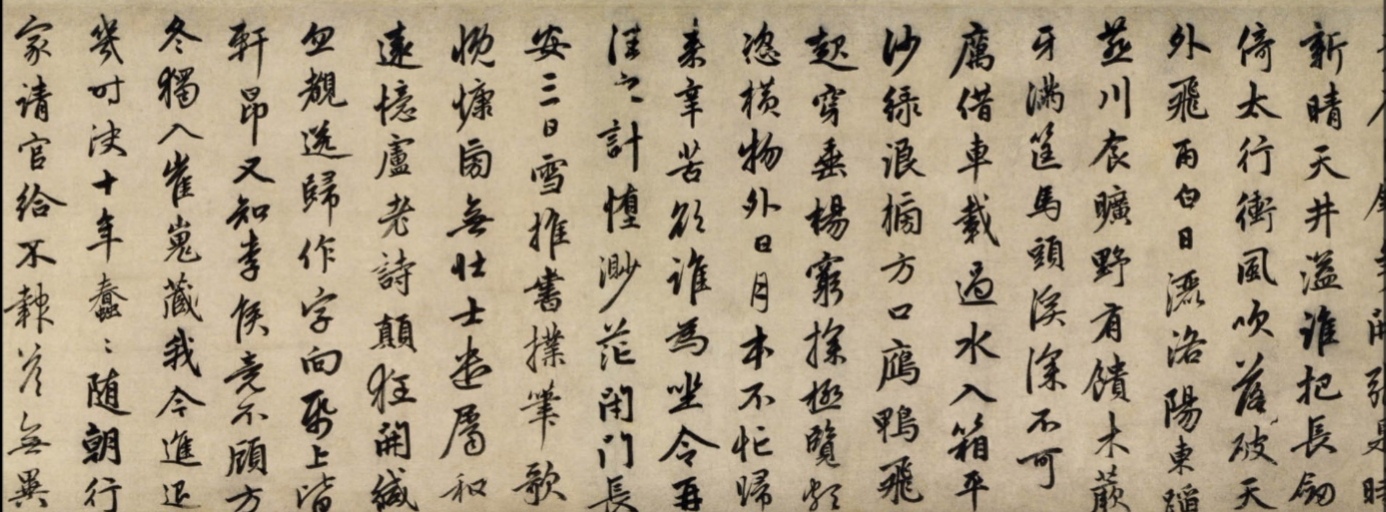 新晴天井溢誰把長劒
倚太行衝風吹落破天
外飛雨白日灑洛陽東蹈
燕川食曠野有饋木蕨
牙滿筐馬頭溪深不可
厲借車載過水入箱平
沙綠浪搒方口鴈鴨飛
起穿垂楊窮探極覽頗
恣橫物外日月本不忙歸
来辛苦欲誰為坐令再
往之計墮渺茫閉門長
安三日雪推書撲筆歌
慨慷旁無壮士遣屬和
遠憶盧老詩顛狂開緘
忽覩送歸作字向紙上皆
軒昂又知李侯竟不顧方
冬獨入崔嵬藏我今進退
幾时決十年蠢〻随朝行
家請官給不報答無異